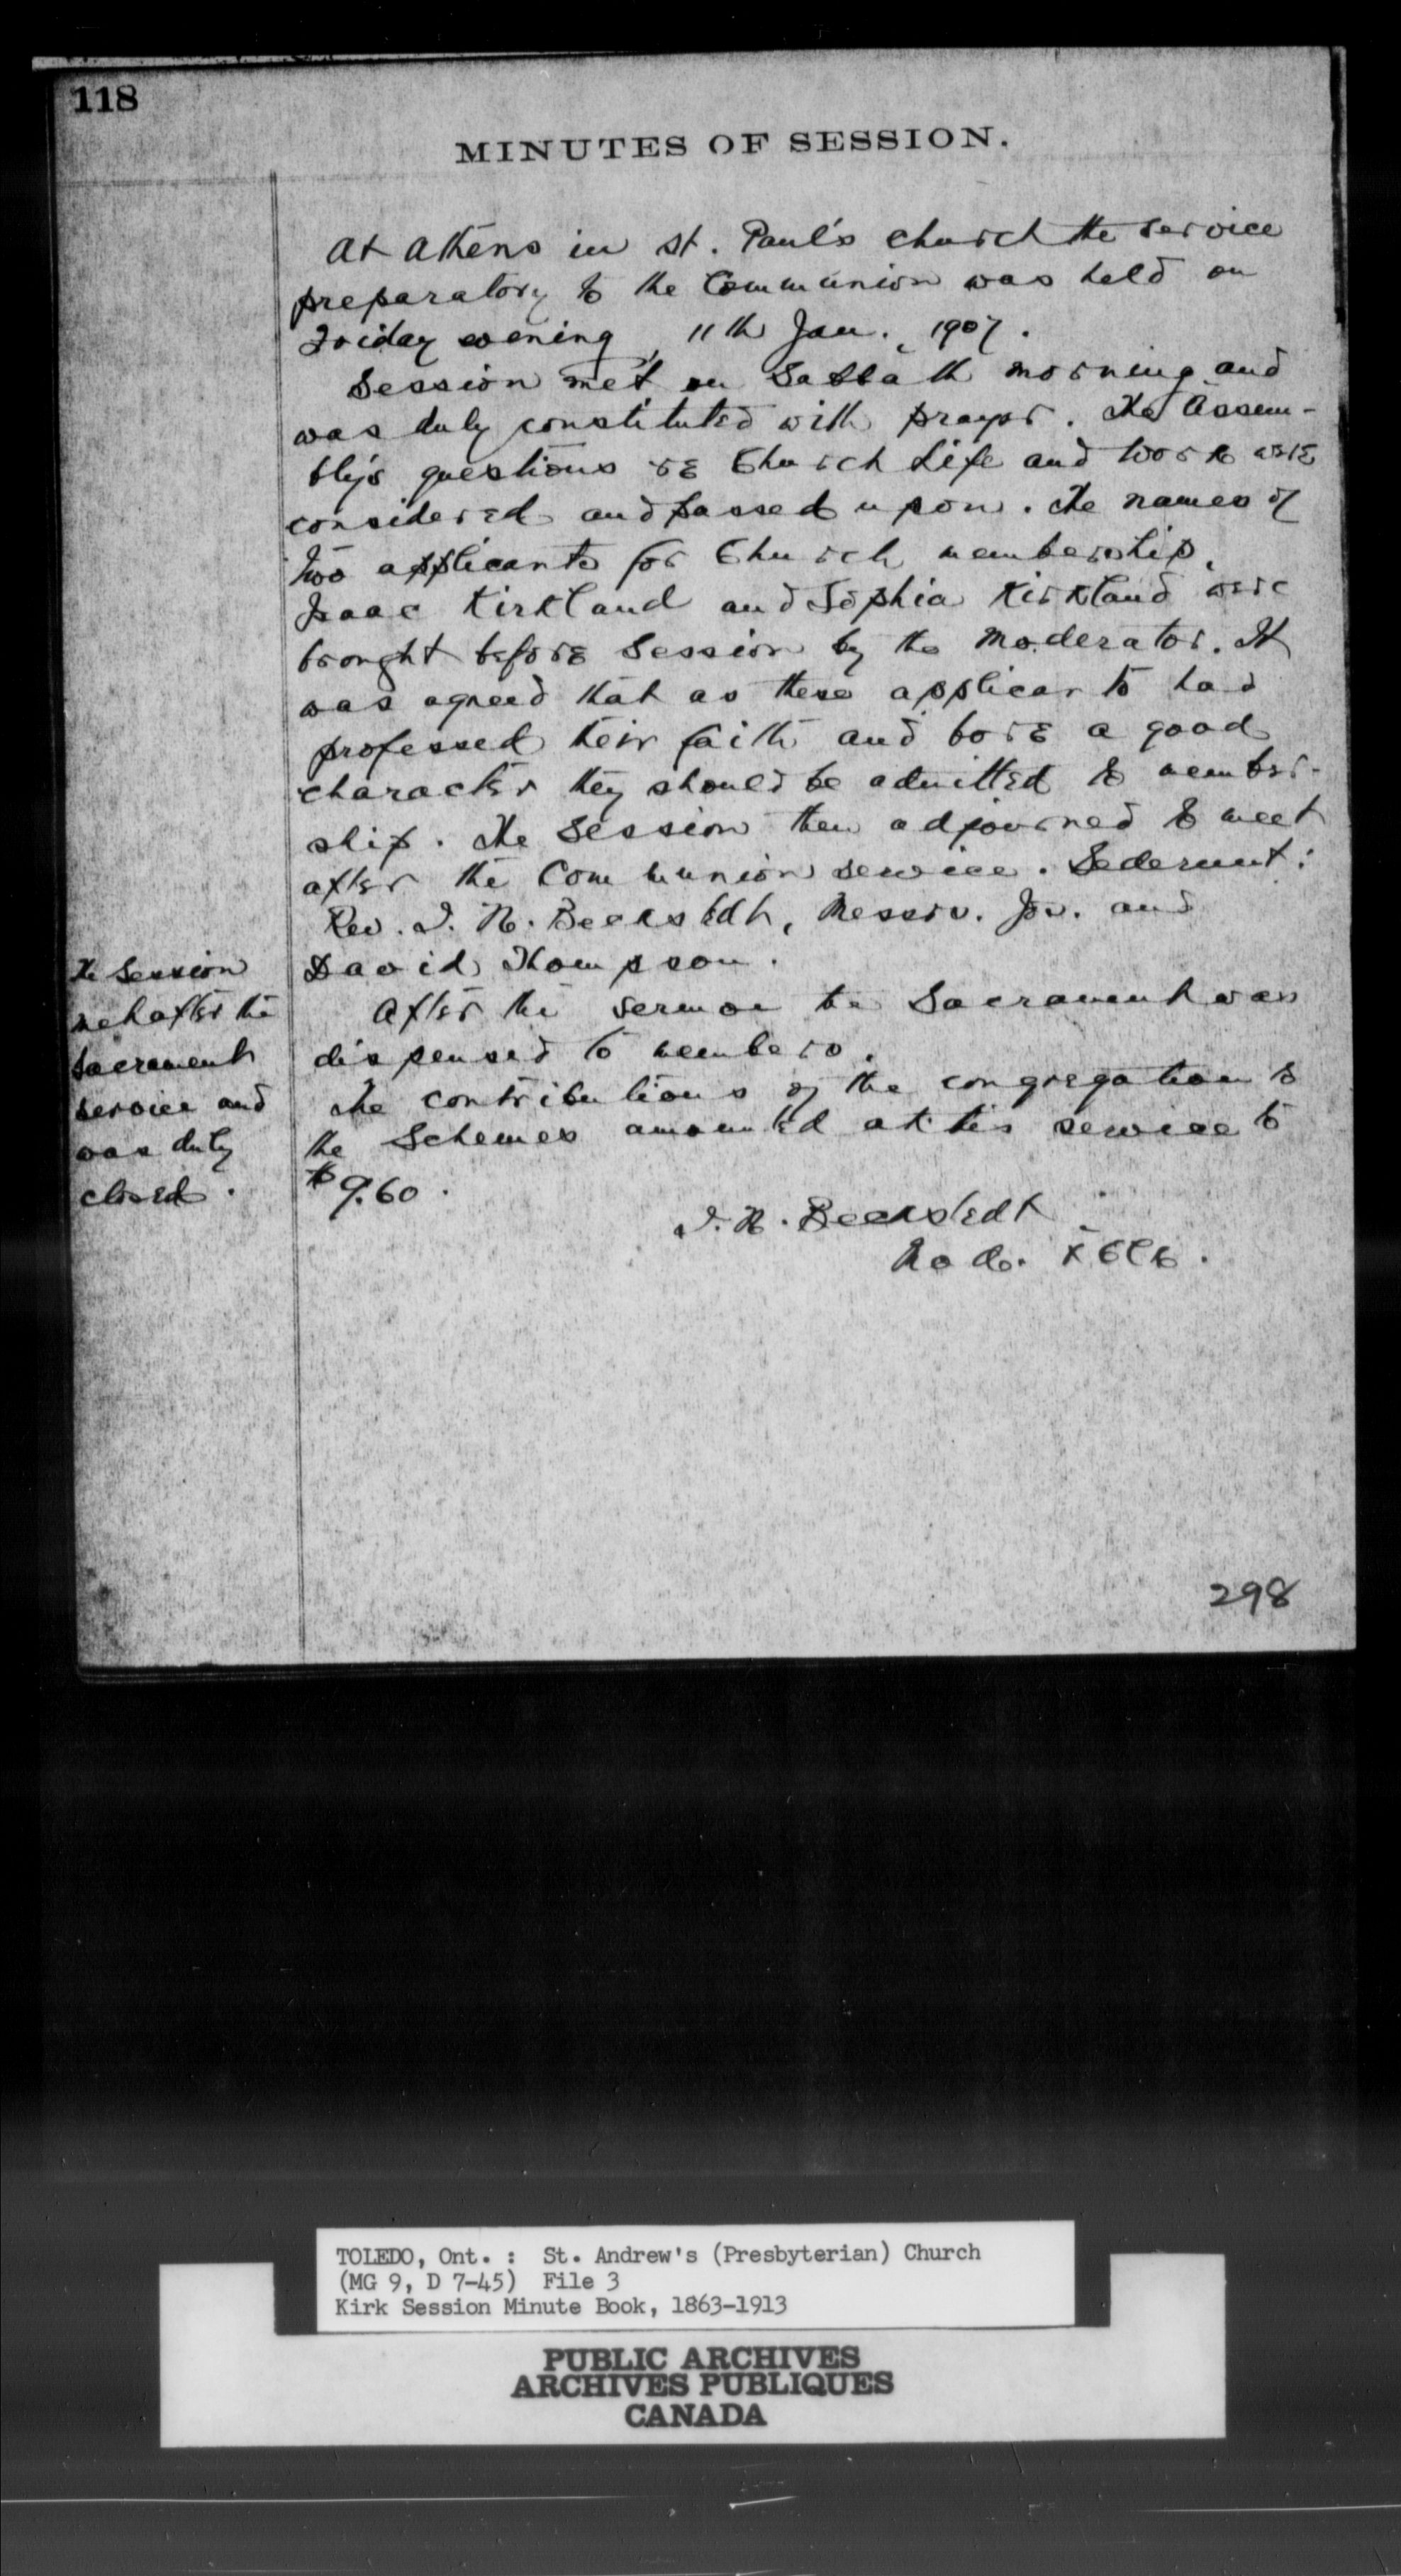 118
MINUTES OF SESSION.
At Athens in St. Paul's church the service
preparatory to the Communion was held on
Friday evening, 11th Jan., 1907.
Session met on Sabbath morning and
was duly constituted with prayer. The Assem-
bly's questions re Church Life and Work were
considered and passed upon. The names of
two applicants for Church membership,
Isaac Kirkland and Sophia Kirkland were
brought before Session by the Moderator. It
was agreed that as these applicants had
professed their faith and bore a good
character they should be admitted to member-
ship. The Session then adjourned to meet
after the Communion service. Sederunt:
Rev. I. N. Beckstedt, Messrs. Jos. and
David Thompson.
After the sermon the Sacrament was
dispensed to members.
The contributions of the congregation to
the Schemes amounted at this service to
$9.60.
The Session
met after the
Sacrament
service and
was duly
closed.
I. N. Beckstedt
Mod. & Clk.
298
TOLEDO, Ont. : St. Andrew's (Presbyterian) Church
(MG 9, D 7-45) File 3
Kirk Session Minute Book, 1863-1913
PUBLIC ARCHIVES
ARCHIVES PUBLIQUES
CANADA